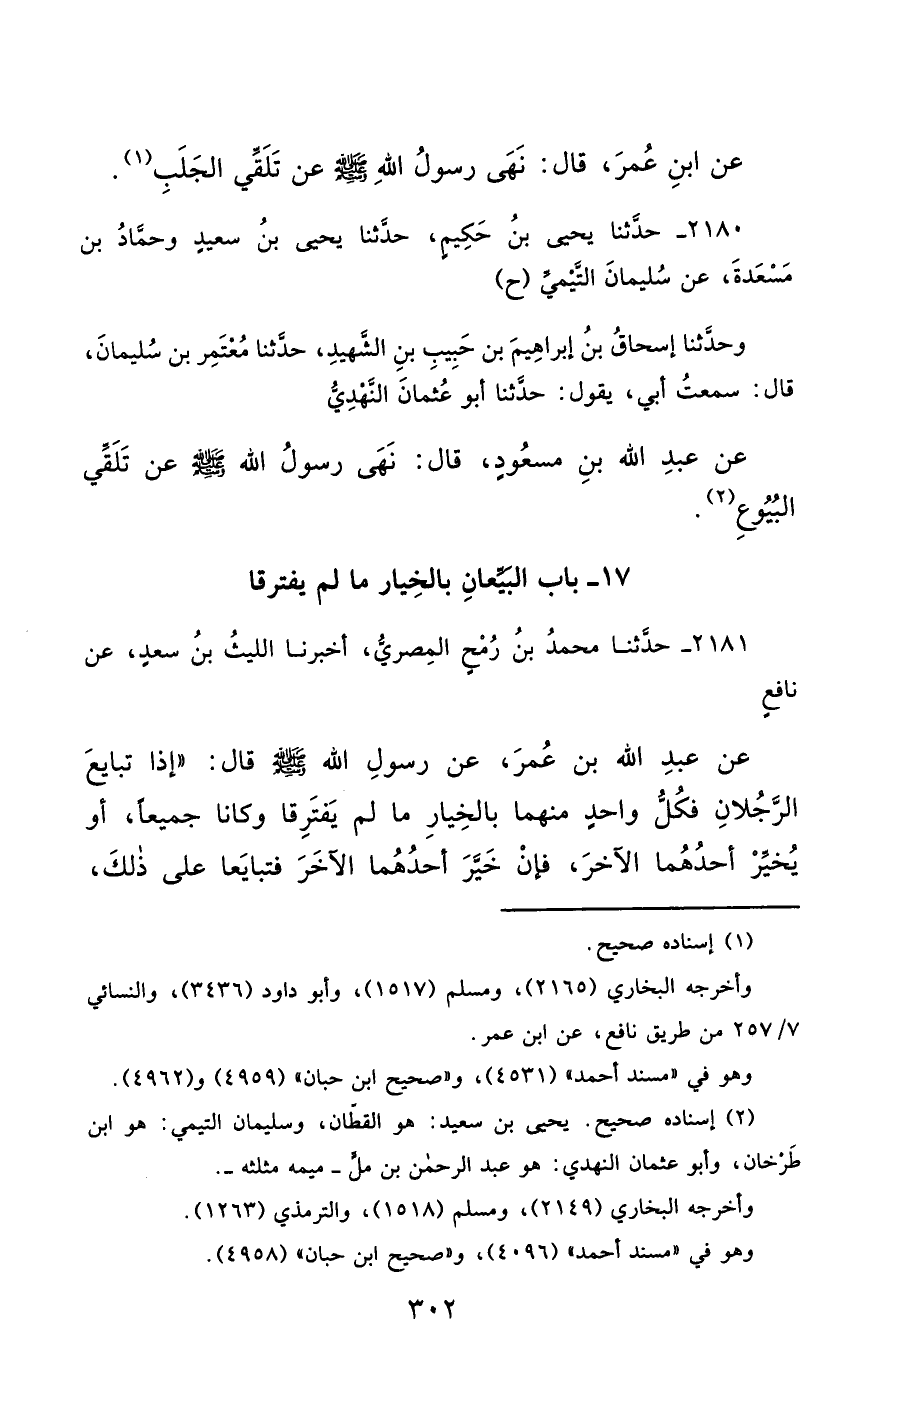 عن ابنِ عُمرَ، قال: نَهَى رسولُ اللهِ ﷺ عن تَلَقِّي الجَلَبِ(١).
٢١٨٠ـ حدَّثنا يحيى بنُ حَكِيمٍ، حدَّثنا يحيى بنُ سعيدٍ وحمَّادُ بن
مَسْعَدةَ، عن سُليمانَ التَّيْميِّ (ح)
وحدَّثنا إسحاقُ بنُ إبراهِيمَ بن حَبِيبِ بنِ الشَّهيدِ، حدَّثنا مُعْتَمِر بن سُليمانَ،
قال: سمعتُ أبي، يقول: حدَّثنا أبو عُثمانَ النَّهْدِيُّ
عن عبدِ الله بنِ مسعُودٍ، قال: نَهَى رسولُ الله ﷺ عن تَلَقِّي
البُيُوعِ(٢).
١٧ـ باب البَيِّعانِ بالخِيار ما لم يفترقا
٢١٨١ـ حدَّثنا محمدُ بنُ رُمْحٍ المِصريُّ، أخبرنا الليثُ بنُ سعدٍ، عن
نافعٍ
عن عبدِ الله بن عُمرَ، عن رسولِ الله ﷺ قال: «إذا تبايعَ
الرَّجُلانِ فكُلُّ واحدٍ منهما بالخِيارِ ما لم يَفتَرِقا وكانا جميعاً، أو
يُخيِّرْ أحدُهُما الآخرَ، فإنْ خَيَّرَ أحدُهُما الآخَرَ فتبايَعا على ذٰلكَ،
(١) إسناده صحيح.
وأخرجه البخاري (٢١٦٥)، ومسلم (١٥١٧)، وأبو داود (٣٤٣٦)، والنسائي
٧/ ٢٥٧ من طريق نافع، عن ابن عمر.
وهو في «مسند أحمد» (٤٥٣١)، و«صحيح ابن حبان» (٤٩٥٩) و(٤٩٦٢).
(٢) إسناده صحيح. يحيى بن سعيد: هو القطّان، وسليمان التيمي: هو ابن
طَرْخان، وأبو عثمان النهدي: هو عبد الرحمٰن بن ملٍّ ـ ميمه مثلثه ـ.
وأخرجه البخاري (٢١٤٩)، ومسلم (١٥١٨)، والترمذي (١٢٦٣).
وهو في «مسند أحمد» (٤٠٩٦)، و«صحيح ابن حبان» (٤٩٥٨).
٣٠٢